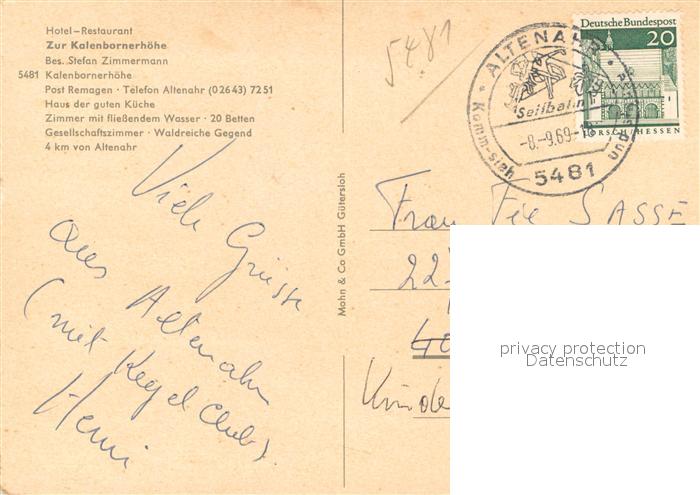 Hotel-Restaurant
Zur Kalenbornerhöhe
Bes. Stefan Zimmermann
5481 Kalenbornerhöhe
Post Remagen · Telefon Altenahr (0 26 43) 72 51
Haus der guten Küche
Zimmer mit fließendem Wasser · 20 Betten
Gesellschaftszimmer · Waldreiche Gegend
4 km von Altenahr
5481
ALTENAHR
Seilbahn
-8.-9.69-18
5481
Deutsche Bundespost
20
LORSCH/HESSEN
Viele Grüsse
aus Altenahr
(mit Kegelclub)
Mohn & Co GmbH Gütersloh
Frau SASSE
22
40
Kinde
privacy protection
Datenschutz